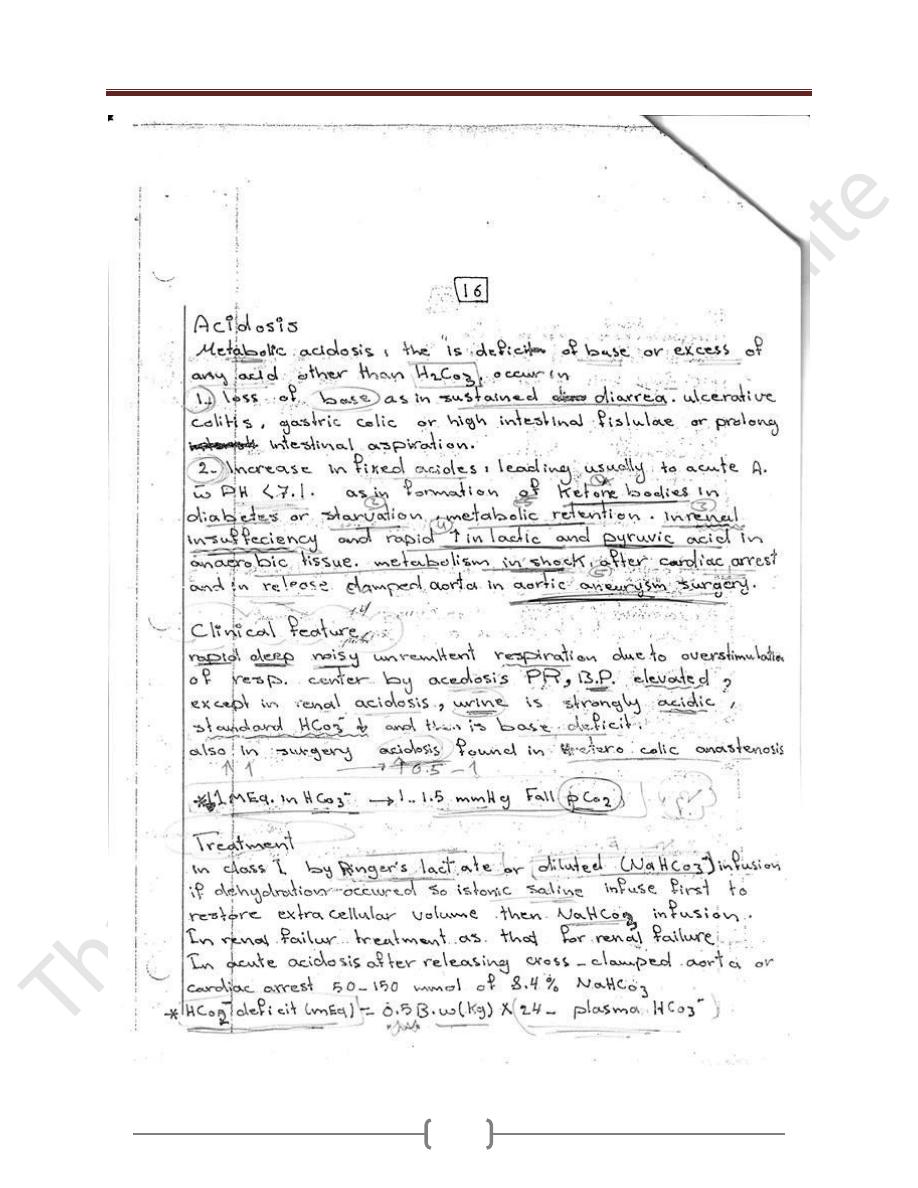 16
Acidosis
Metabolic acidosis, the is deficit of base or excess of
any acid other than H2Co3, occur in
1. loss of base as in sustained diarrea. ulcerative
colitis, gastric colic or high intestinal fislulae or prolong
intestinal aspiration.
2- Increase in fixed acides, leading usually to acute A.
w̄ PH <7.1. as in formation of Ketone bodies in
diabetes or starvation, metabolic retention. in renal
insuffeciency and rapid ↑ in lactic and pyruvic acid in
anaerobic tissue. metabolism in shock, after cardiac arrest
and in release clamped aorta in aortic aneurysm surgery.
Clinical feature
rapid deep noisy unremittent respiration due to overstimulation
of resp. center by acedosis PR, B.P. elevated,
except in renal acidosis, urine is strongly acidic,
standard HCo3- ↓ and is base deficit.
also in surgery acidosis found in uretero colic anastenosis
↑ 1 → ↑ 0.5 - 1
* 1 MEq. in HCo3- → 1.. 1.5 mmHg Fall pCo2
Treatment
in class I by Ringer's lactate or diluted (NaHCo3-) infusion
if dehydration occured so istonic saline infuse first to
restore extracellular volume then NaHCo3 infusion.
In renal failur treatment as that for renal failure
In acute acidosis after releasing cross-clamped aorta or
cardiac arrest 50-150 mmol of 8.4% NaHCo3
* HCo3- deficit (mEq) = 0.5 B.w(Kg) X (24 - plasma HCo3-)
Th
ite